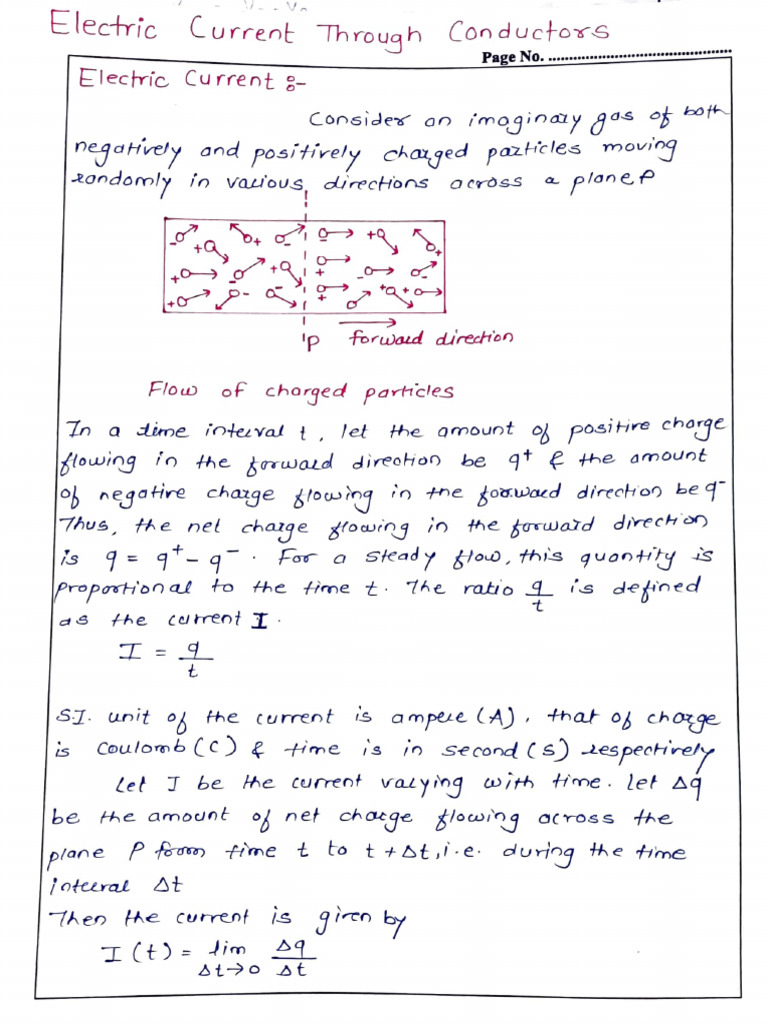 Electric Current Through Conductors
Page No. ................................................
Electric Current :-
Consider an imaginary gas of both
negatively and positively charged particles moving
randomly in various directions across a plane P
P forward direction
Flow of charged particles
In a time interval t, let the amount of positive charge
flowing in the forward direction be q⁺ & the amount
of negative charge flowing in the forward direction be q⁻
Thus, the net charge flowing in the forward direction
is q = q⁺ - q⁻. For a steady flow, this quantity is
proportional to the time t. The ratio q/t is defined
as the current I.
I = q/t
S.I. unit of the current is ampere (A), that of charge
is Coulomb (C) & time is in second (S) respectively
Let I be the current varying with time. Let Δq
be the amount of net charge flowing across the
plane P from time t to t + Δt, i.e. during the time
interval Δt
Then the current is given by
I (t) = lim Δt→0 Δq/Δt